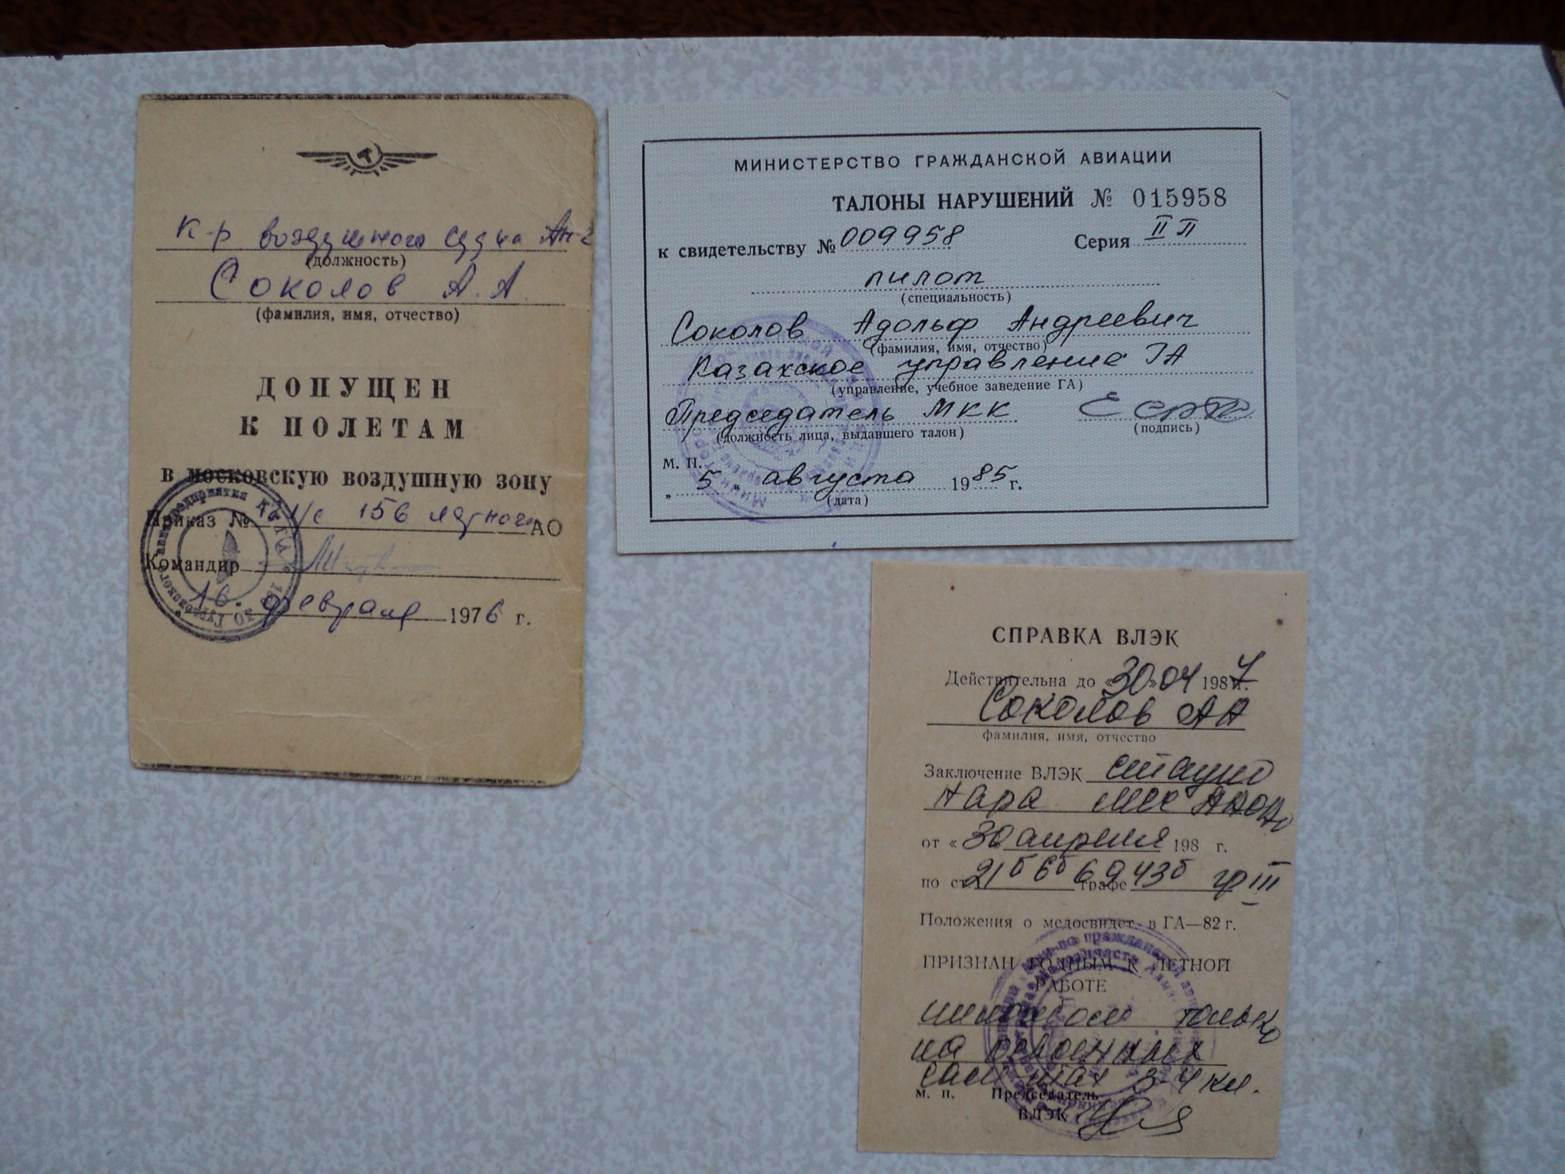 К-р воздушного судна Ан-2
(должность)
Соколов А.А.
(фамилия, имя, отчество)
ДОПУЩЕН
К ПОЛЕТАМ
в московскую воздушную зону
Приказ № 156 летного АО
Командир
16. февраля 1976 г.
МИНИСТЕРСТВО ГРАЖДАНСКОЙ АВИАЦИИ
ТАЛОНЫ НАРУШЕНИЙ № 015958
к свидетельству № 009958 Серия II П
пилот
(специальность)
Соколов Адольф Андреевич
(фамилия, имя, отчество)
Казахское управление ГА
(управление, учебное заведение ГА)
Председатель МКК
(должность лица, выдавшего талон) (подпись)
М. П.
„ 5 „ августа 1985 г.
(дата)
СПРАВКА ВЛЭК
Действительна до «30» 04 1987 г.
Соколов АА
фамилия, имя, отчество
Заключение ВЛЭК
от « 30 апреля 198 г.
по ст. 21б 6б 69 графе гр III
Положения о медосвидет. в ГА—82 г.
ПРИЗНАН ГОДНЫМ К ЛЕТНОЙ
РАБОТЕ
пилотом только
на
3-4 кл.
м. п. Председатель
ВЛЭК